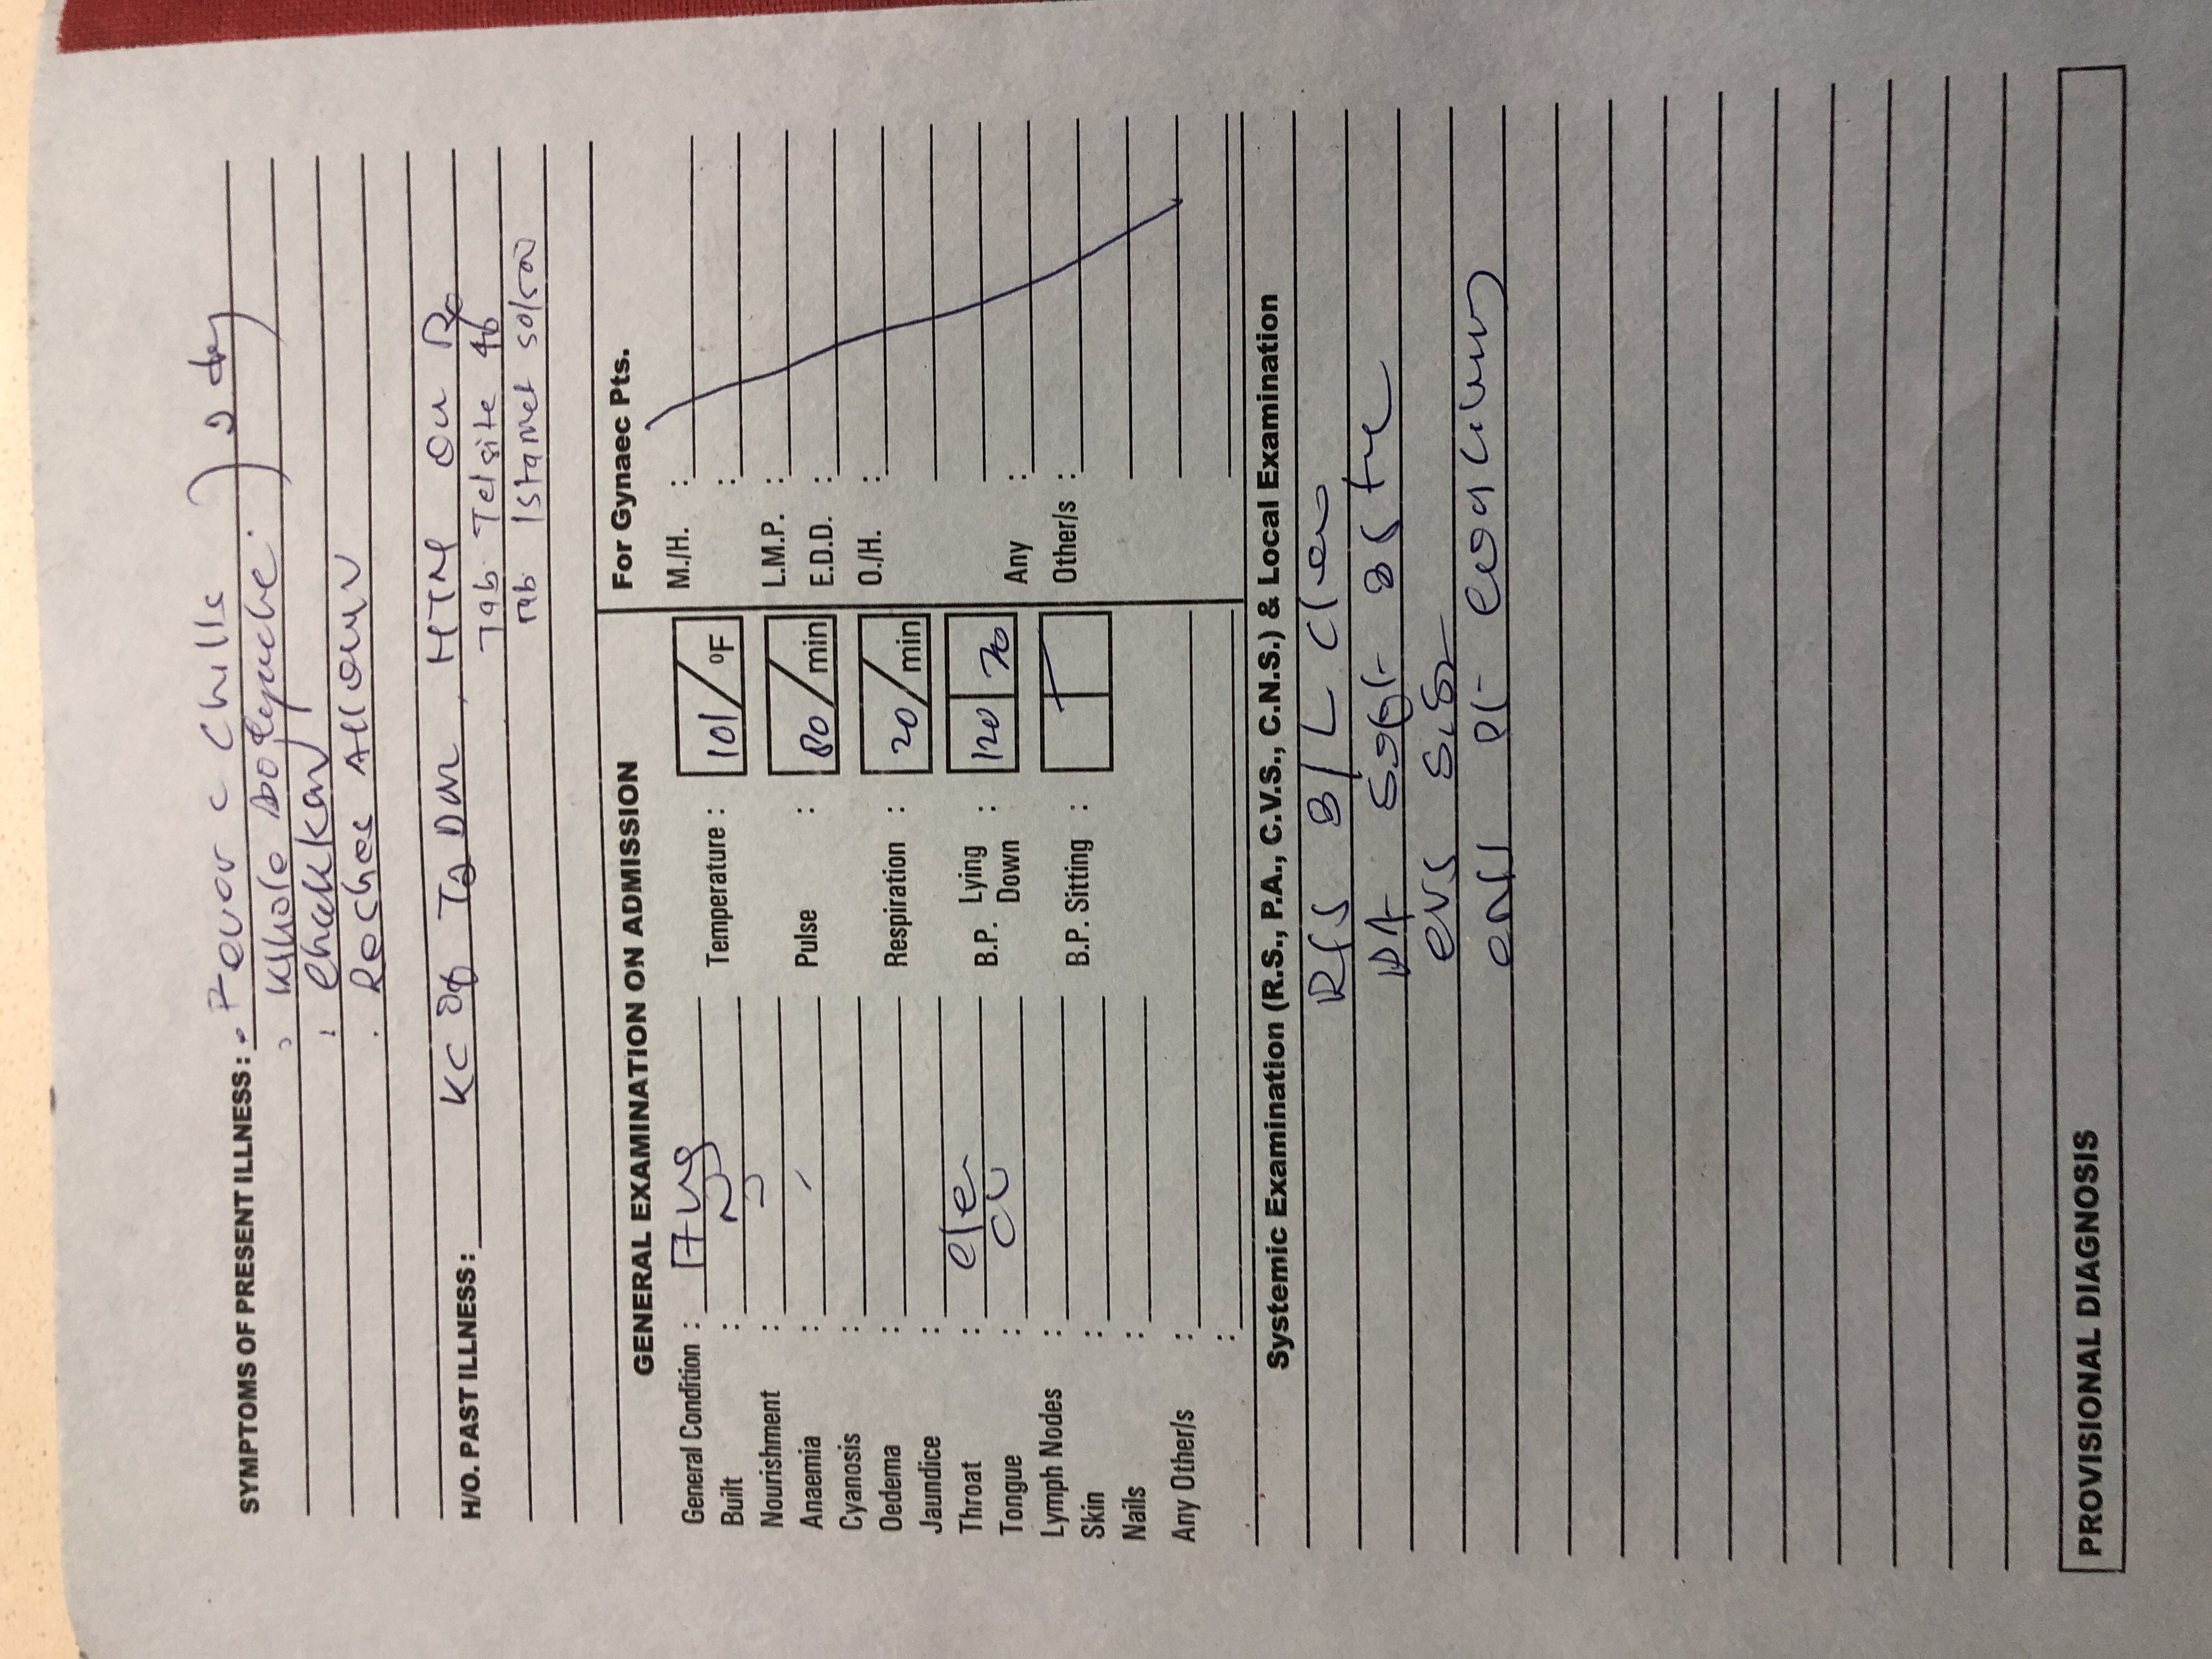 SYMPTOMS OF PRESENT ILLNESS : Fever c Chills
Whole Bodyache
Chakkar
Raches All over
H/O. PAST ILLNESS : KC of T2 DM, HTN On Rx
Tab Telsite 40
Tab Istamet 50/500
GENERAL EXAMINATION ON ADMISSION
For Gynaec Pts.
General Condition :
Built :
Nourishment :
Anaemia :
Cyanosis :
Oedema :
Jaundice :
Throat :
Tongue :
Lymph Nodes :
Skin :
Nails :
Any Other/s :
:
Temperature : 101 / ºF
Pulse : 80 / min
Respiration : 20 / min
B.P. Lying Down : 120 70
B.P. Sitting :
M./H. :
:
L.M.P. :
E.D.D. :
O./H. :
Any :
Other/s :
Systemic Examination (R.S., P.A., C.V.S., C.N.S.) & Local Examination
R/S B/L Clear
PA Soft BS +ve
CVS S1S2
CNS Pt Conscious
PROVISIONAL DIAGNOSIS